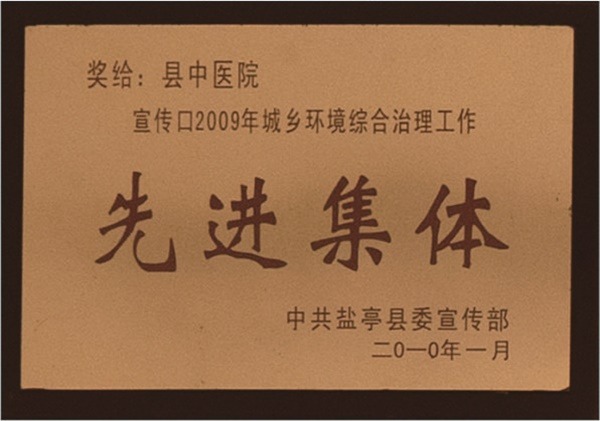 奖给：县中医院
宣传口2009年城乡环境综合治理工作
先进集体
中共盐亭县委宣传部
二0一0年一月